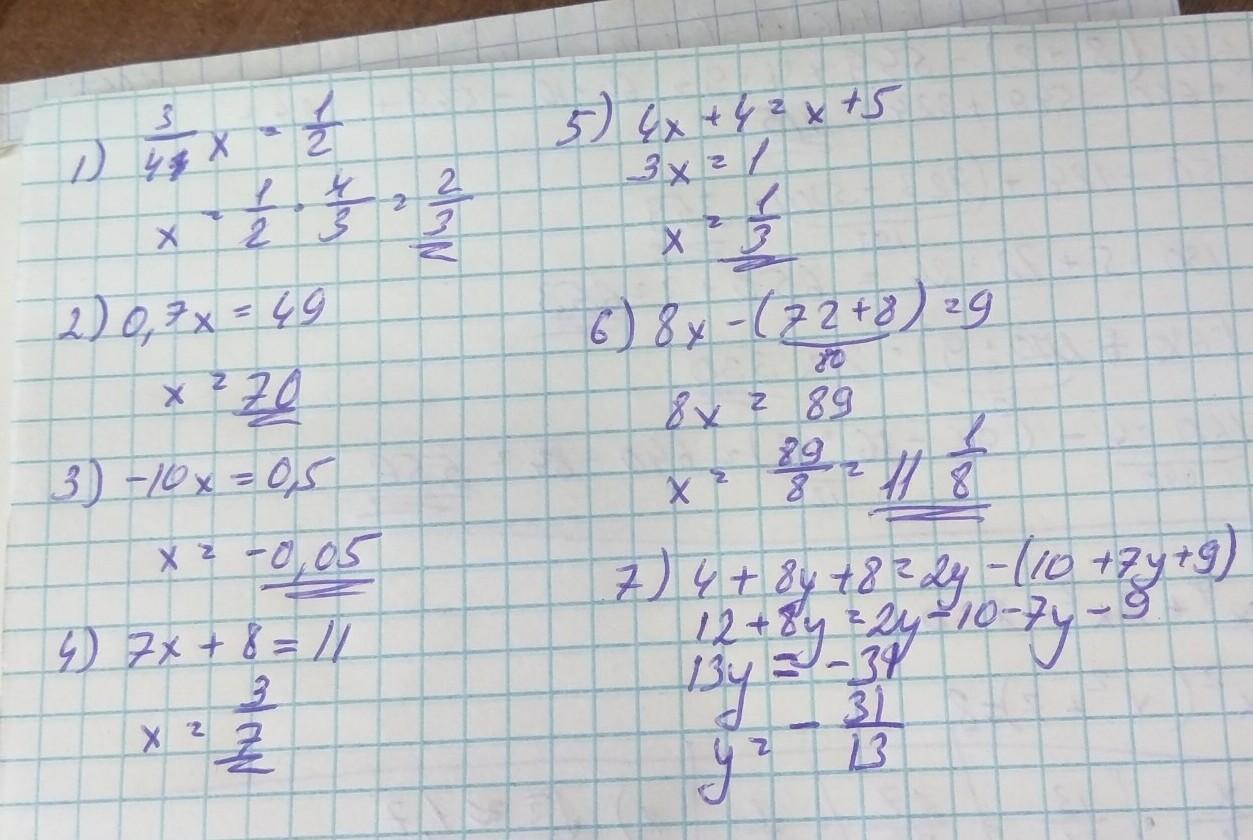 1) 3/4 x = 1/2
x = 1/2 · 4/3 = 2/3
2) 0,7x = 49
x = 70
3) -10x = 0,5
x = -0,05
4) 7x + 8 = 11
x = 3/7
5) 4x + 4 = x + 5
3x = 1
x = 1/3
6) 8x - (72 + 8) = 9
80
8x = 89
x = 89/8 = 11 1/8
7) 4 + 8y + 8 = 2y - (10 + 7y + 9)
12 + 8y = 2y - 10 - 7y - 9
13y = - 31
y = - 31/13